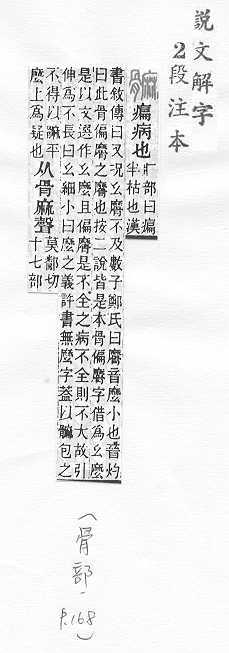 說文解字
2段注本
髍 㾫病也 疒部曰㾫
半枯也漢
書敘傳曰又況幺䯢不及數子鄭氏曰䯢音麼小也晉灼
曰此骨偏䯢之䯢也按二說皆是本骨偏䯢字借爲幺麼
是以文選作幺麼且偏䯢是不全之病不全則不大故引
伸爲不長曰幺細小曰麼之義許書無麼字葢以髍包之
不得以髍平
麼上爲疑也 从骨麻聲 莫鄱切
十七部
(骨部, P.168)